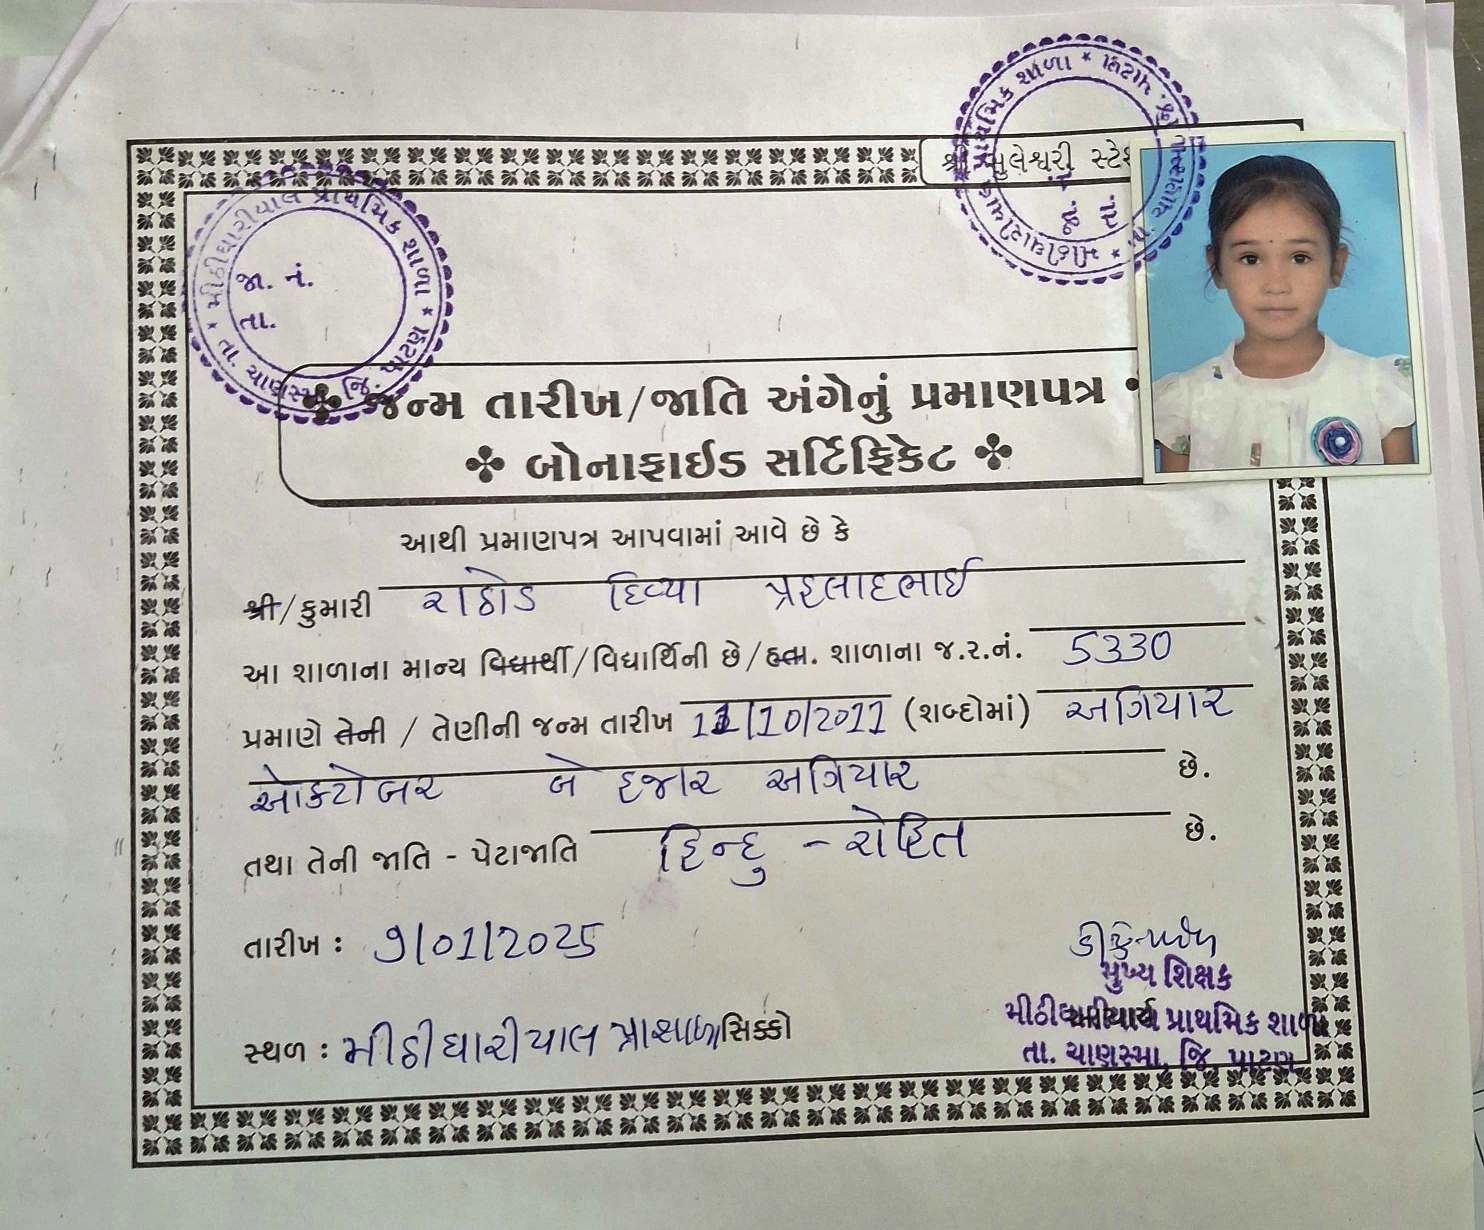 શ્રી મુલેશ્વરી સ્ટેશ
મીઠીઘારીયાલ પ્રાથમિક શાળા * તા. ચાણસ્મા, જિ. પાટણ *
જા. નં.
તા.
મીઠીઘારીયાલ પ્રાથમિક શાળા * તા. ચાણસ્મા, જિ. પાટણ *
જા. નં.
તા.
જન્મ તારીખ/જાતિ અંગેનું પ્રમાણપત્ર
બોનાફાઈડ સર્ટિફિકેટ
આથી પ્રમાણપત્ર આપવામાં આવે છે કે
શ્રી/કુમારી રાઠોડ દિવ્યા પ્રહલાદભાઈ
આ શાળાના માન્ય વિદ્યાર્થી/વિદ્યાર્થિની છે/હતા. શાળાના જ.ર.નં. 5330
પ્રમાણે તેની / તેણીની જન્મ તારીખ 11/10/2011 (શબ્દોમાં) અગિયાર
ઓક્ટોબર બે હજાર અગિયાર છે.
તથા તેની જાતિ - પેટાજાતિ હિન્દુ - રોહિત છે.
તારીખ : 9/01/2025
મુખ્ય શિક્ષક
સ્થળ : મીઠીઘારીયાલ પ્રા શાળા સિક્કો
મીઠીઘારીયાલ પ્રાથમિક શાળા
તા. ચાણસ્મા, જિ. પાટણ